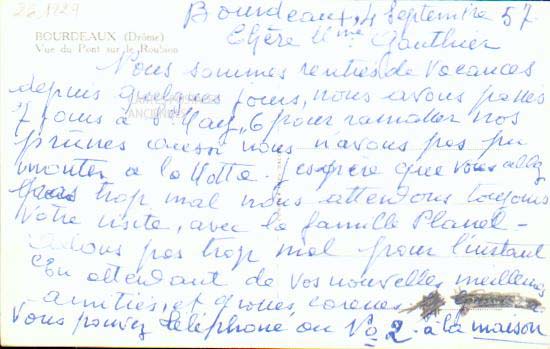 26.1929
Bourdeaux, 4 Septembre 57
BOURDEAUX (Drôme)
Vue du Pont sur le Roubion
Chère Mme Gauthier
Nous sommes rentrés de vacances
depuis quelques jours, nous avons passés
7 jours à 6 pour ramasser nos
prunes aussi nous n'avons pas pu
monter à la Motte. J'espère que vous allez
pas trop mal nous attendons toujours
votre visite, avec la famille Planel -
allons pas trop mal pour l'instant
En attendant de vos nouvelles meilleures
amitiés, et
vous pouvez téléphone au No 2 à la maison